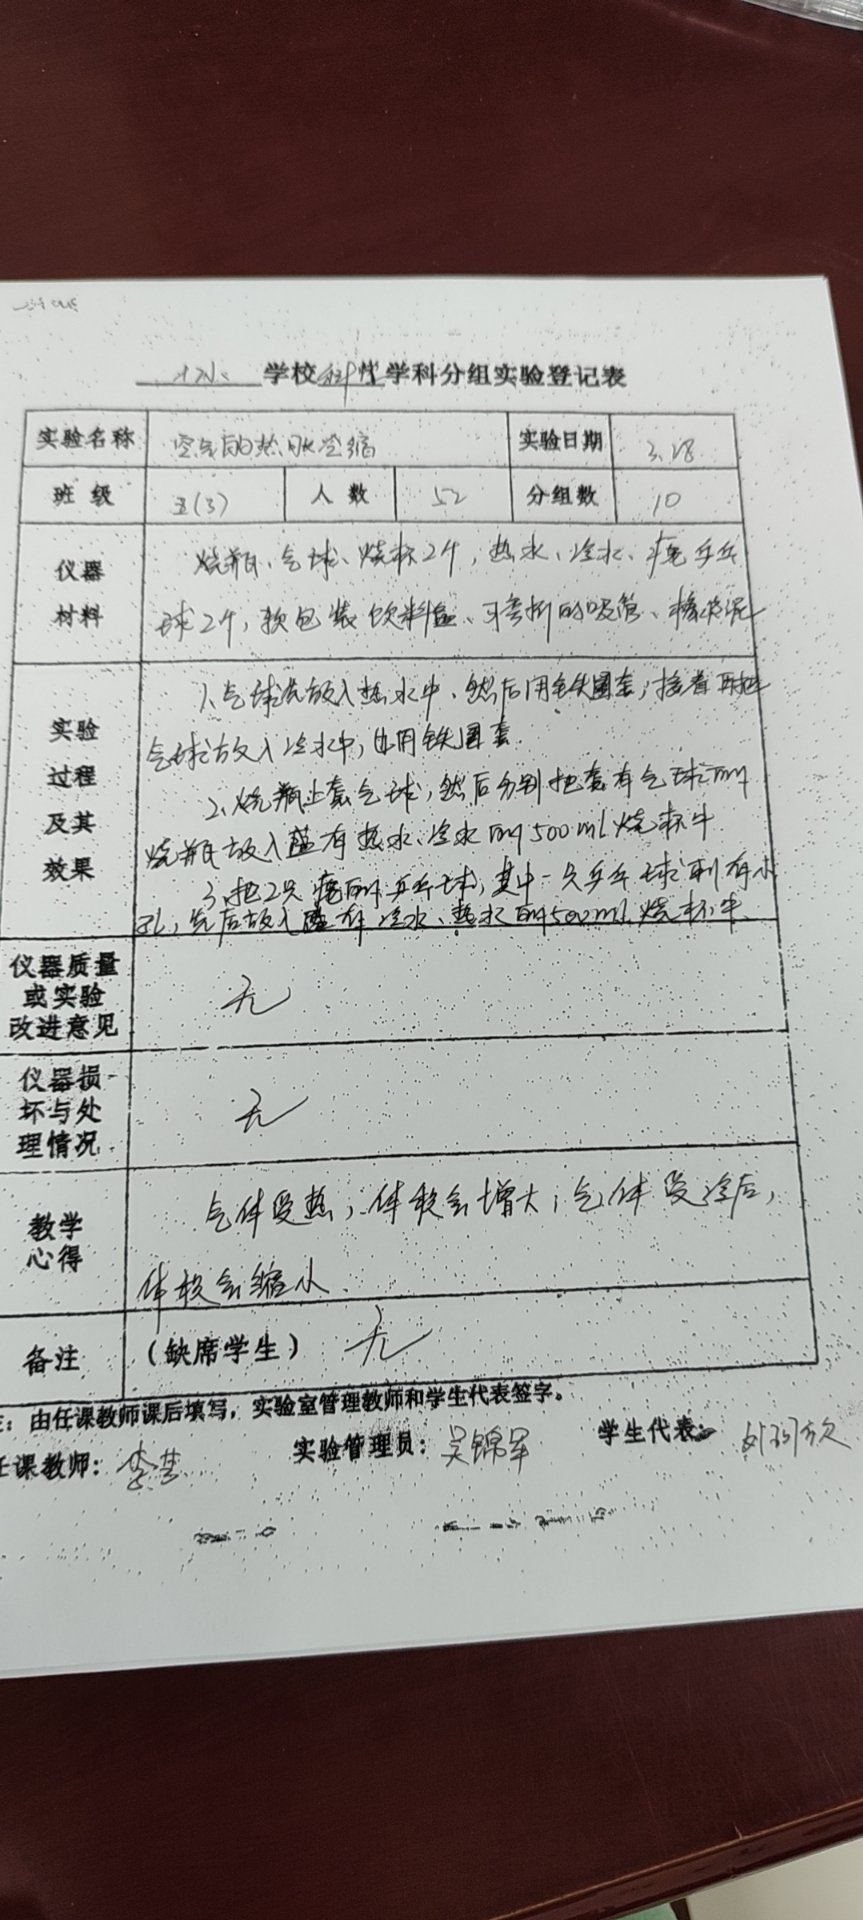 学校科学学科分组实验登记表
实验名称 空气的热胀冷缩 实验日期 3.28
班级 五(3) 人数 52 分组数 10
仪器材料 烧瓶、气球、烧杯2个,热水、冷水、瘪乒乓
球2个,软包装饮料盒、可弯折的吸管、橡皮泥
实验过程及其效果 1、气球先放入热水中,然后用铁圈套;接着再把
气球放入冷水中,也用铁圈套.
2、烧瓶上套气球,然后分别把套有气球的
烧瓶放入盛有热水、冷水的500ml烧杯中
3、把2只瘪的乒乓球,其中一只乒乓球刺有小
孔,先后放入盛有冷水、热水的500ml烧杯中.
仪器质量或实验改进意见 无
仪器损坏与处理情况 无
教学心得 气体受热,体积会增大;气体受冷后,
体积会缩小.
备注 (缺席学生) 无
:由任课教师课后填写,实验室管理教师和学生代表签字。
任课教师: 实验管理员:吴锦军 学生代表: